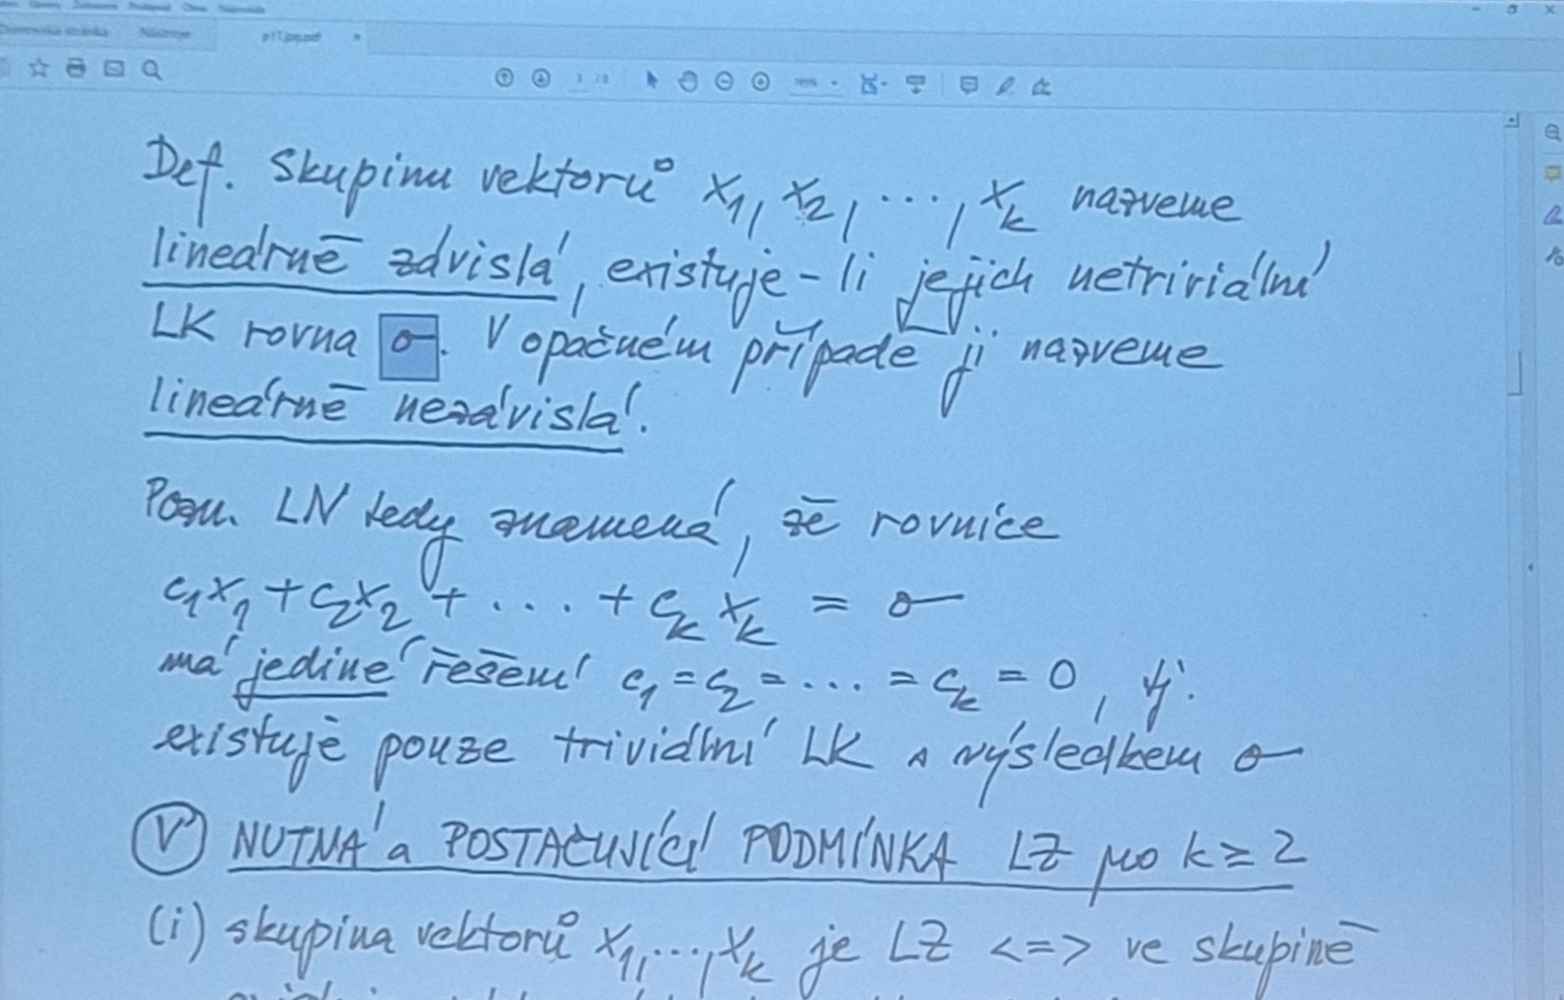 p17.jpg.pdf
Def. Skupinu vektorů x1, x2, ..., xk nazveme
lineárně závislá, existuje-li jejich netriviální
LK rovna σ. V opačném případě ji nazveme
lineárně nezávislá.
Pozn. LN tedy znamená, že rovnice
c1x1 + c2x2 + ... + ck xk = σ
má jediné řešení c1 = c2 = ... = ck = 0, tj.
existuje pouze triviální LK s výsledkem σ
V NUTNÁ a POSTAČUJÍCÍ PODMÍNKA LZ pro k ≥ 2
(i) skupina vektorů x1, ..., xk je LZ <=> ve skupině